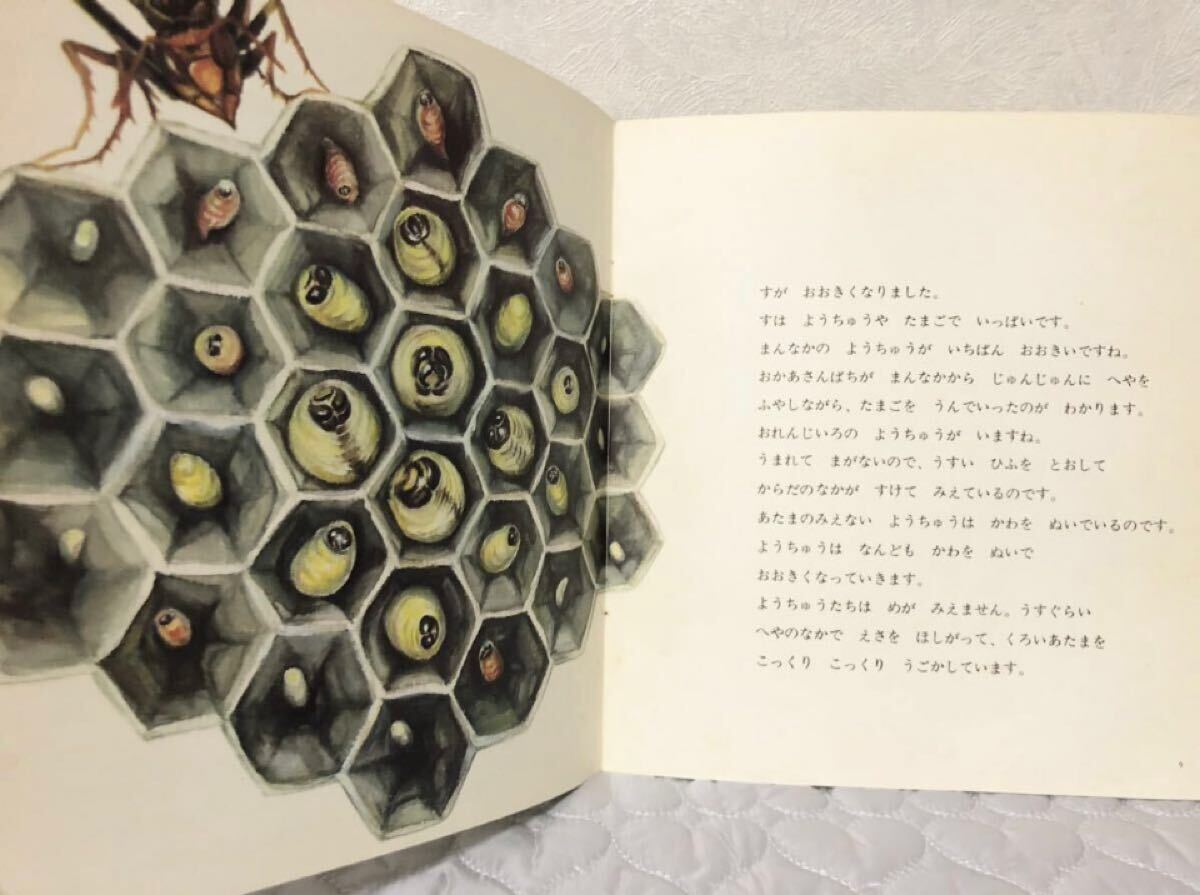 すが　おおきくなりました。
すは　ようちゅうや　たまごで　いっぱいです。
まんなかの　ようちゅうが　いちばん　おおきいですね。
おかあさんばちが　まんなかから　じゅんじゅんに　へやを
ふやしながら、たまごを　うんでいったのが　わかります。
おれんじいろの　ようちゅうが　いますね。
うまれて　まがないので、うすい　ひふを　とおして
からだのなかが　すけて　みえているのです。
あたまのみえない　ようちゅうは　かわを　ぬいでいるのです。
ようちゅうは　なんども　かわを　ぬいで
おおきくなっていきます。
ようちゅうたちは　めが　みえません。うすぐらい
へやのなかで　えさを　ほしがって、くろいあたまを
こっくり　こっくり　うごかしています。
9